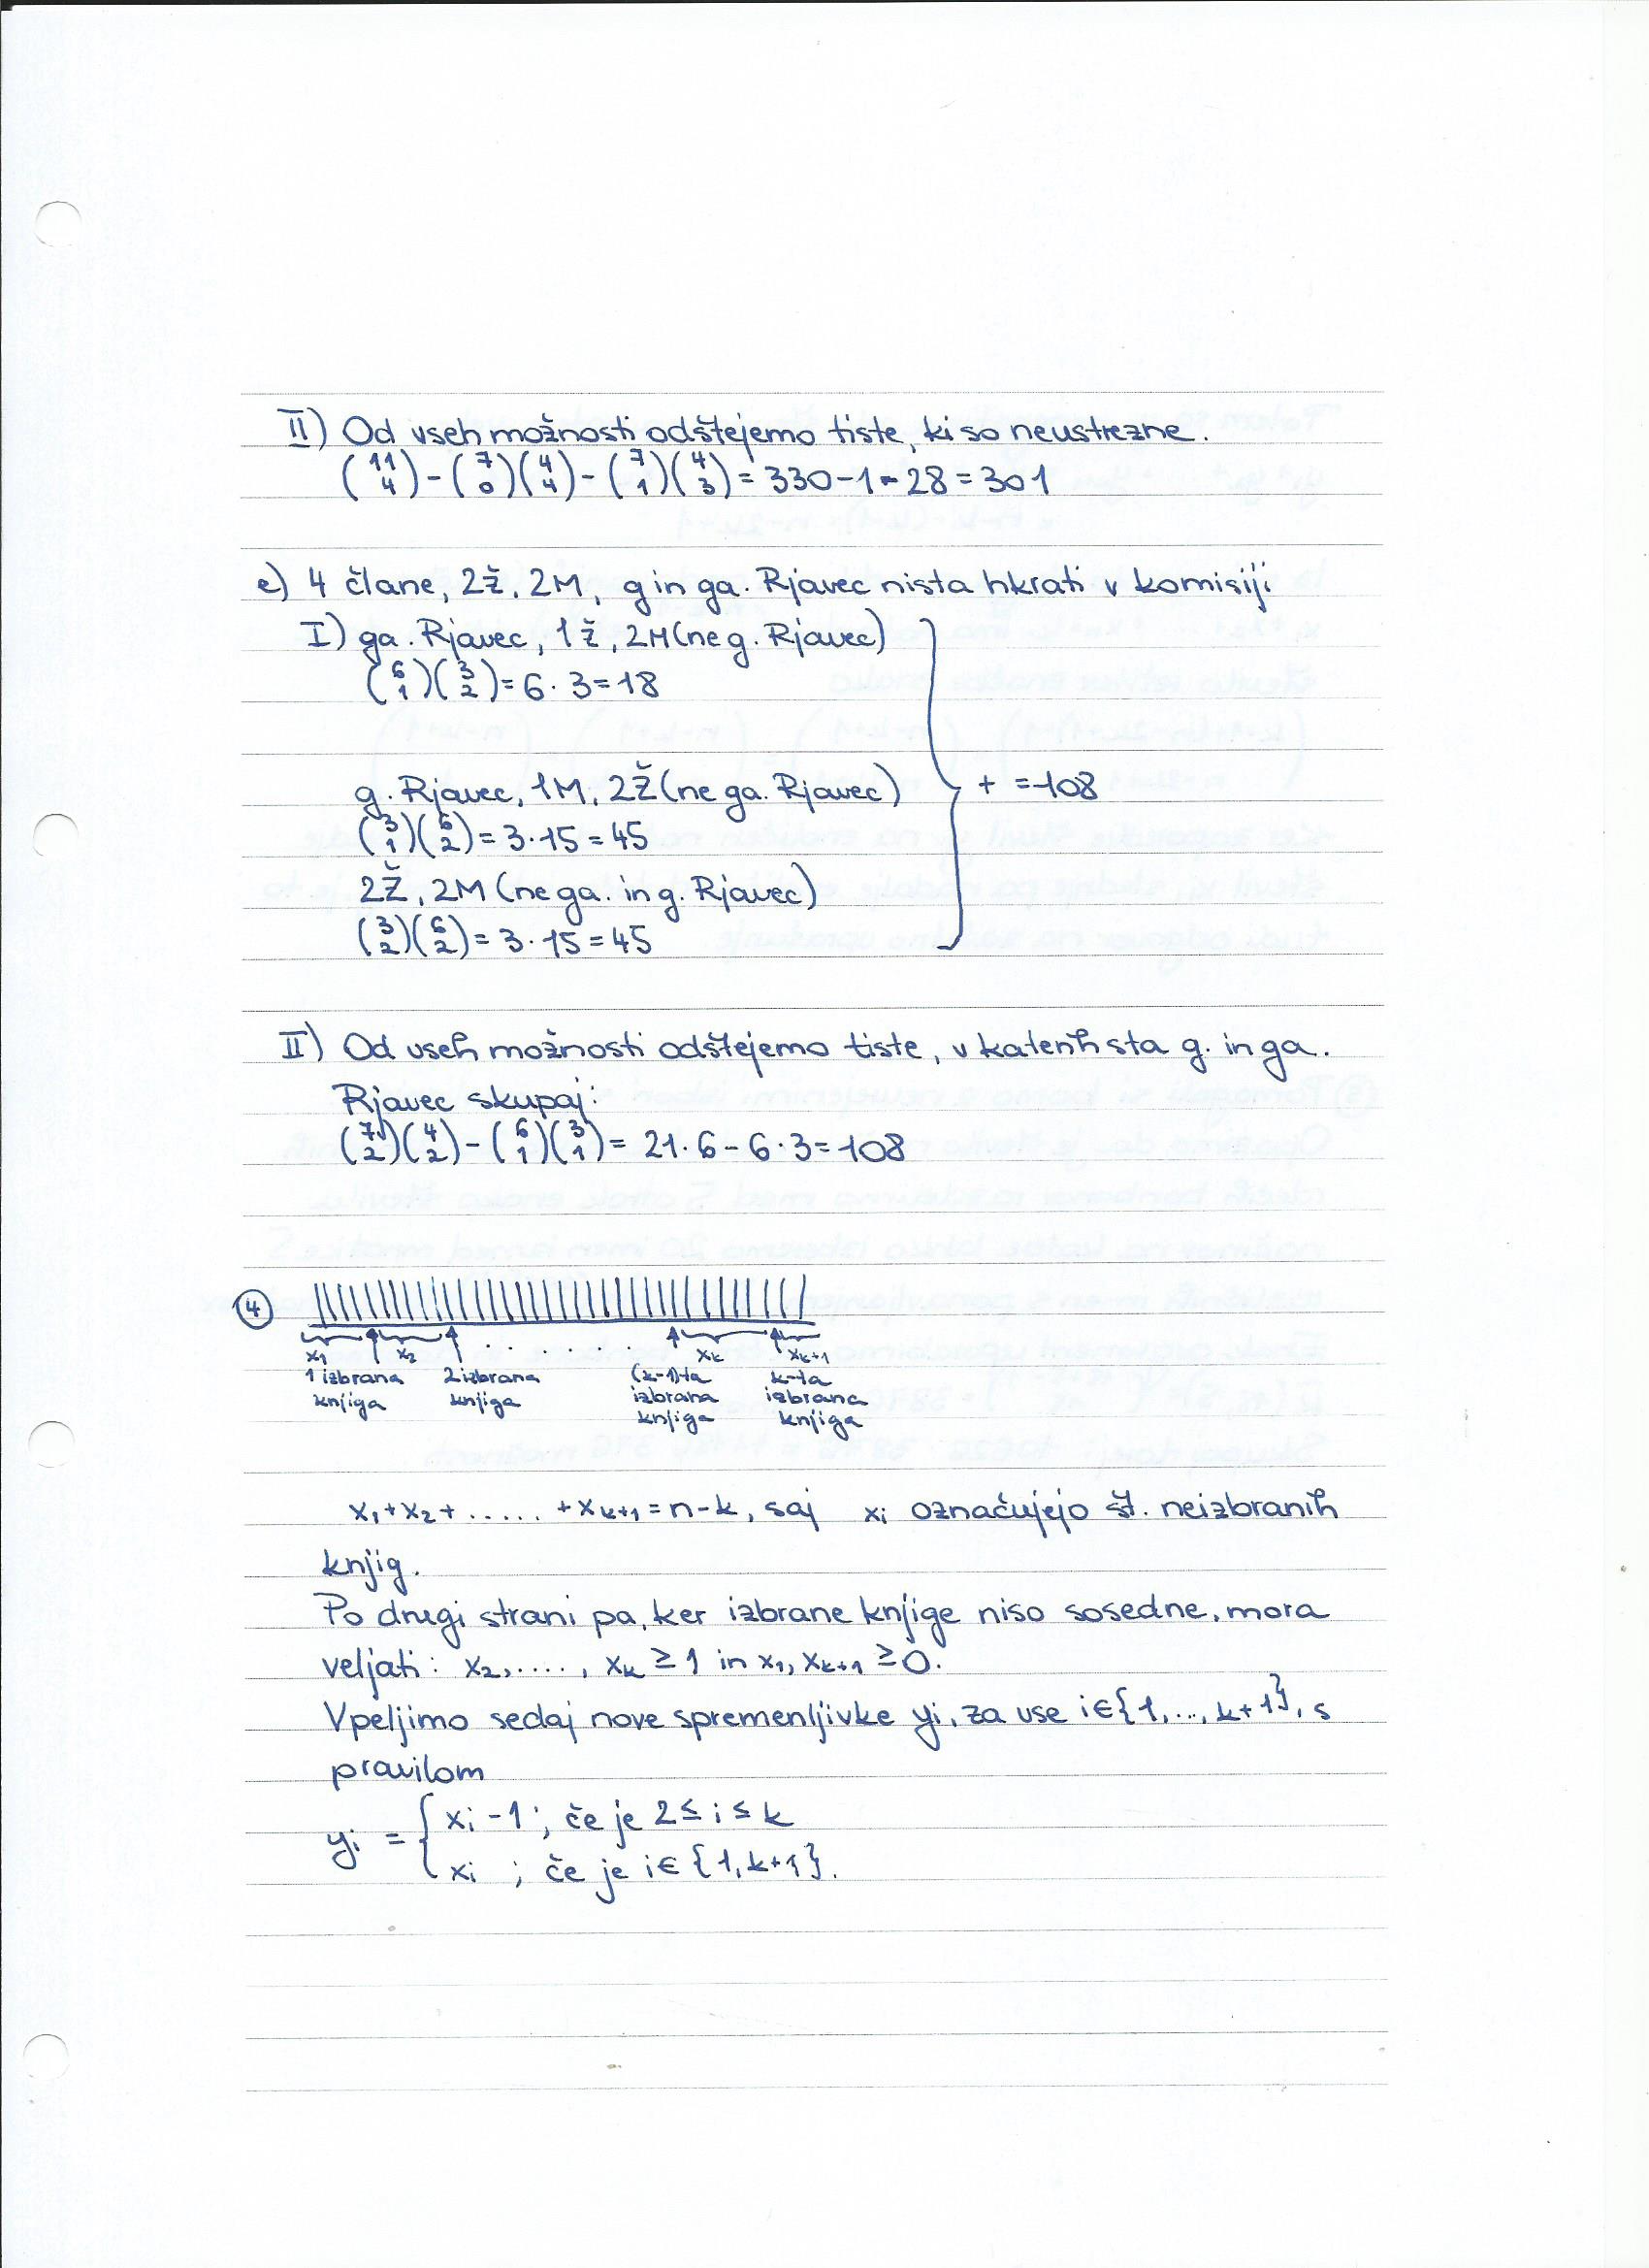 II) Od vseh možnosti odštejemo tiste, ki so neustrezne.
(11 4) - (7 0)(4 4) - (7 1)(4 3) = 330 - 1 - 28 = 301
e) 4 člane, 2ž, 2M, g in ga. Rjavec nista hkrati v komisiji
I) ga. Rjavec, 1ž, 2M (ne g. Rjavec)
(6 1)(3 2) = 6 · 3 = 18
g. Rjavec, 1M, 2Ž (ne ga. Rjavec) } + = 108
(3 1)(6 2) = 3 · 15 = 45
2Ž, 2M (ne ga. in g. Rjavec)
(3 2)(6 2) = 3 · 15 = 45
II) Od vseh možnosti odštejemo tiste, v katerih sta g. in ga.
Rjavec skupaj:
(7 2)(4 2) - (6 1)(3 1) = 21 · 6 - 6 · 3 = 108
4
x₁ x₂ . . . . . . . xₖ xₖ₊₁
1 izbrana knjiga
2 izbrana knjiga
(k-1)-ta izbrana knjiga
k-ta izbrana knjiga
x₁ + x₂ + ..... + xₖ₊₁ = n - k, saj xᵢ označujejo št. neizbranih
knjig.
Po drugi strani pa, ker izbrane knjige niso sosedne, mora
veljati: x₂, ...., xₖ ≥ 1 in x₁, xₖ₊₁ ≥ 0.
Vpeljimo sedaj nove spremenljivke yᵢ, za vse i∈{1,..., k+1}, s
pravilom
yᵢ = { xᵢ - 1 ; če je 2 ≤ i ≤ k
xᵢ ; če je i∈{1, k+1}.